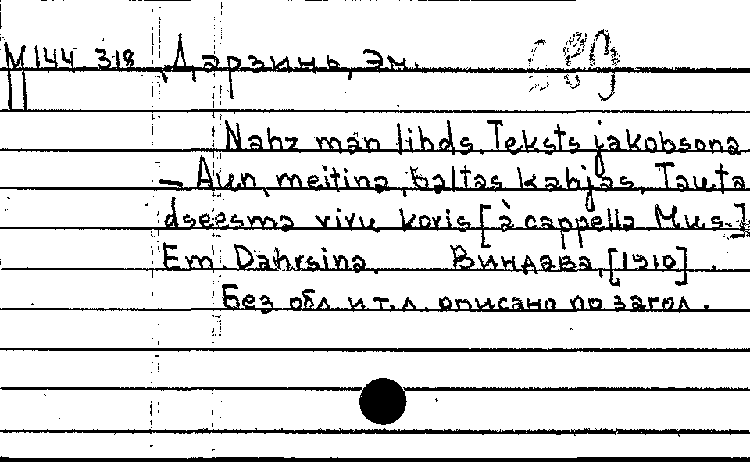 М 144 318 Дарзинь, Эм.
Nahz man lihds. Teksts jakobsona
– Aun, meitina, baltas kahjas, Tauta
dseesma viru koris [à cappella Mus.]
Em. Dahrsina. Виндава, [1910].
Без обл. и т.л. описано по загол.